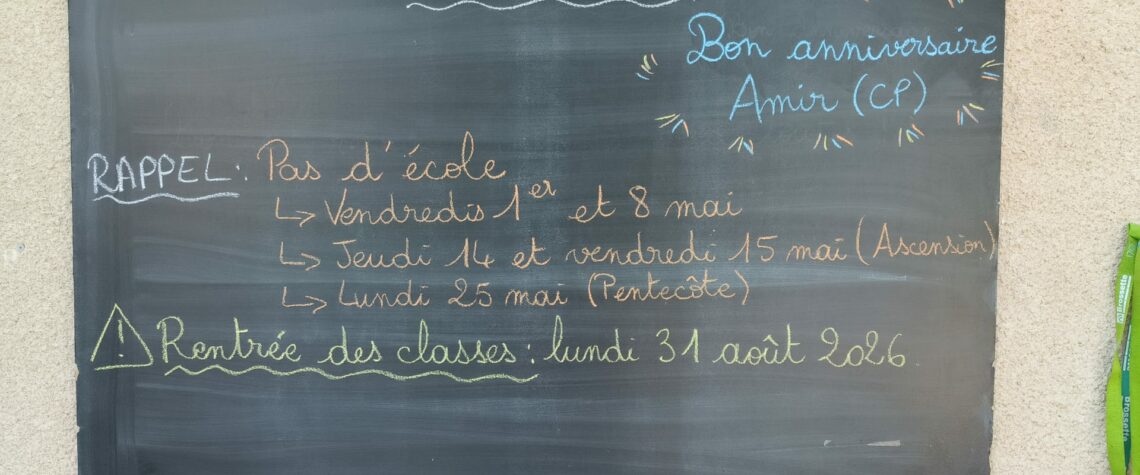 Bon anniversaire
Amir (CP)
RAPPEL : Pas d'école
↳ Vendredis 1er et 8 mai
↳ Jeudi 14 et vendredi 15 mai (Ascension)
↳ Lundi 25 mai (Pentecôte)
⚠ Rentrée des classes : lundi 31 août 2026.
Brossette
Brossette